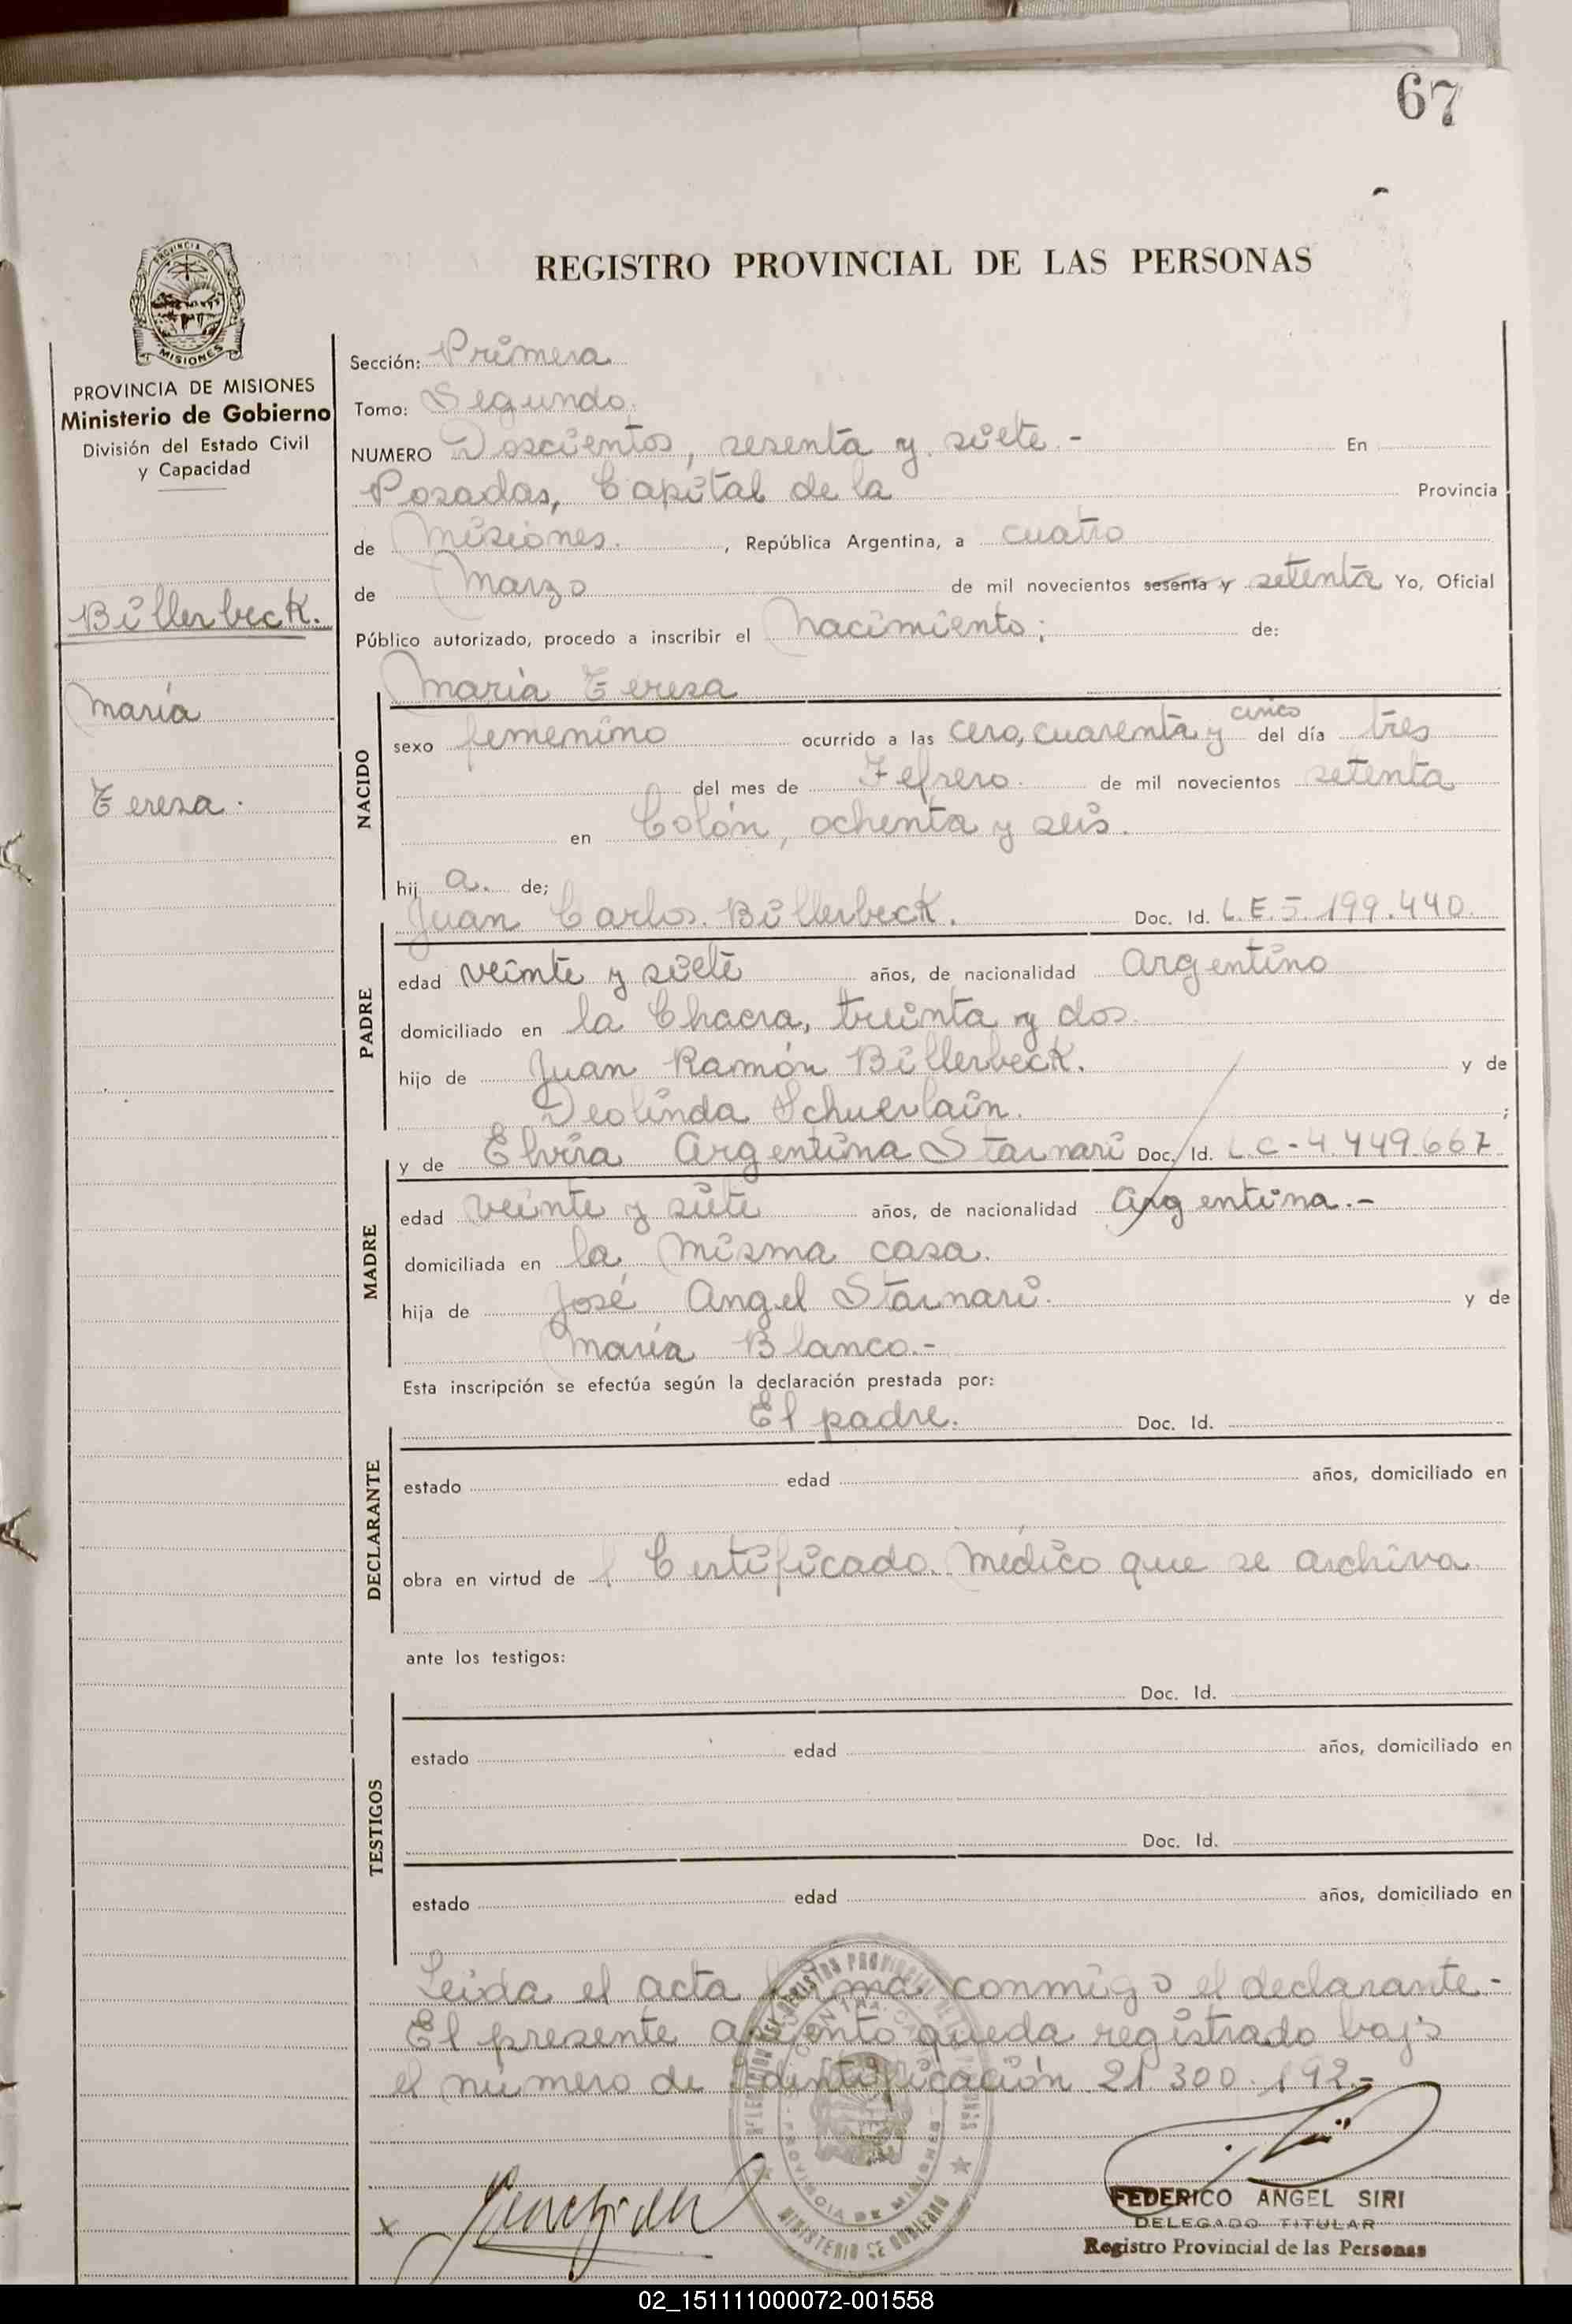 67
REGISTRO PROVINCIAL DE LAS PERSONAS
PROVINCIA DE MISIONES
Ministerio de Gobierno
División del Estado Civil
y Capacidad
Billerbeck.
María
Teresa.
Sección: Primera
Tomo: Segundo.
NUMERO Doscientos, sesenta y siete.- En
Posadas, Capital de la Provincia
de Misiones. , República Argentina, a cuatro
de Marzo de mil novecientos sesenta y setenta Yo, Oficial
Público autorizado, procedo a inscribir el Nacimiento; de:
María Teresa
NACIDO
cinco
sexo femenino ocurrido a las cero, cuarenta y del día tres
del mes de Febrero. de mil novecientos setenta
en Colón, ochenta y seis.
hij a. de;
Juan Carlos Billerbeck. Doc. Id. L.E. 5.199.440.
PADRE
edad veinte y siete años, de nacionalidad Argentino
domiciliado en la Chacra, treinta y dos.
hijo de Juan Ramón Billerbeck. y de
Deolinda Schuerlain. ;
y de Elvira Argentina Starnari Doc. Id. L.C-4.449.667
MADRE
edad veinte y siete años, de nacionalidad Argentina.-
domiciliada en la misma casa.
hija de José Angel Starnari. y de
María Blanco.-
Esta inscripción se efectúa según la declaración prestada por:
El padre. Doc. Id.
DECLARANTE
estado edad años, domiciliado en
obra en virtud de Certificado Médico que se archiva
ante los testigos:
Doc. Id.
TESTIGOS
estado edad años, domiciliado en
Doc. Id.
estado edad años, domiciliado en
Leída el acta firma conmigo el declarante.-
El presente asiento queda registrado bajo
el número de identificación 21.300.192.-
PROVINCIA DE MISIONES
MINISTERIO DE GOBIERNO
FEDERICO ANGEL SIRI
DELEGADO TITULAR
Registro Provincial de las Personas
02_151111000072-001558